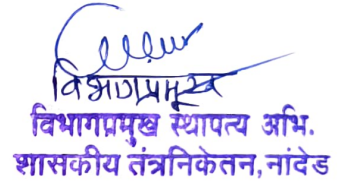 विभागप्रमुख
विभागप्रमुख स्थापत्य अभि.
शासकीय तंत्रनिकेतन, नांदेड